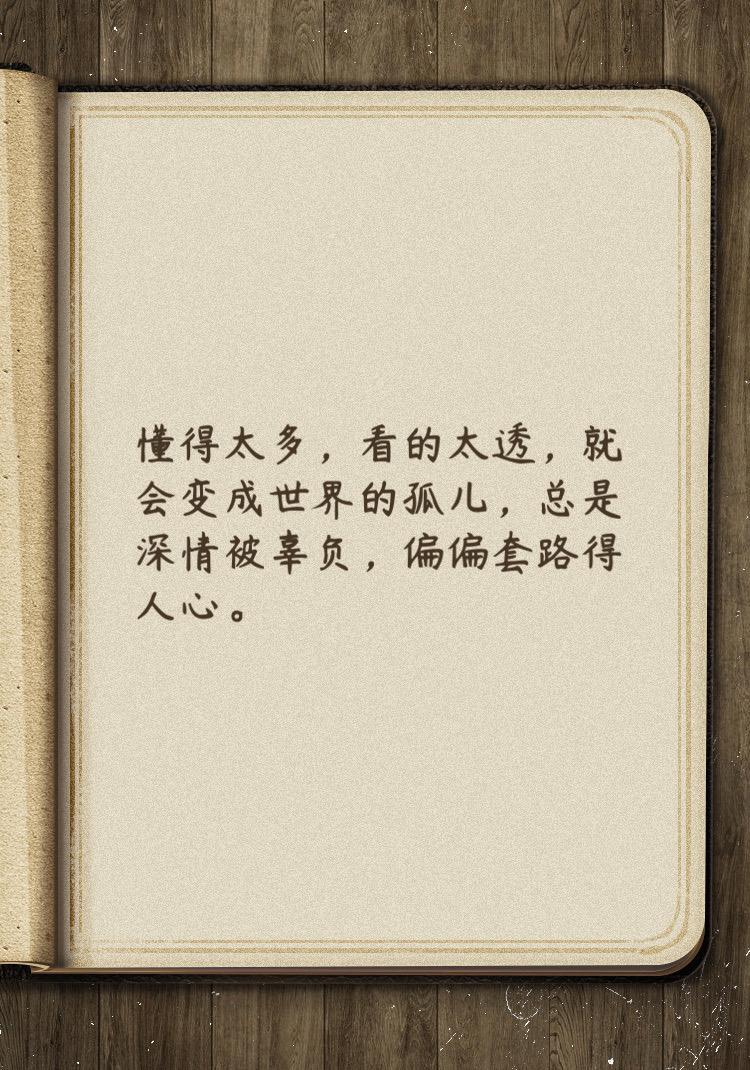 懂得太多，看的太透，就
会变成世界的孤儿，总是
深情被辜负，偏偏套路得
人心。